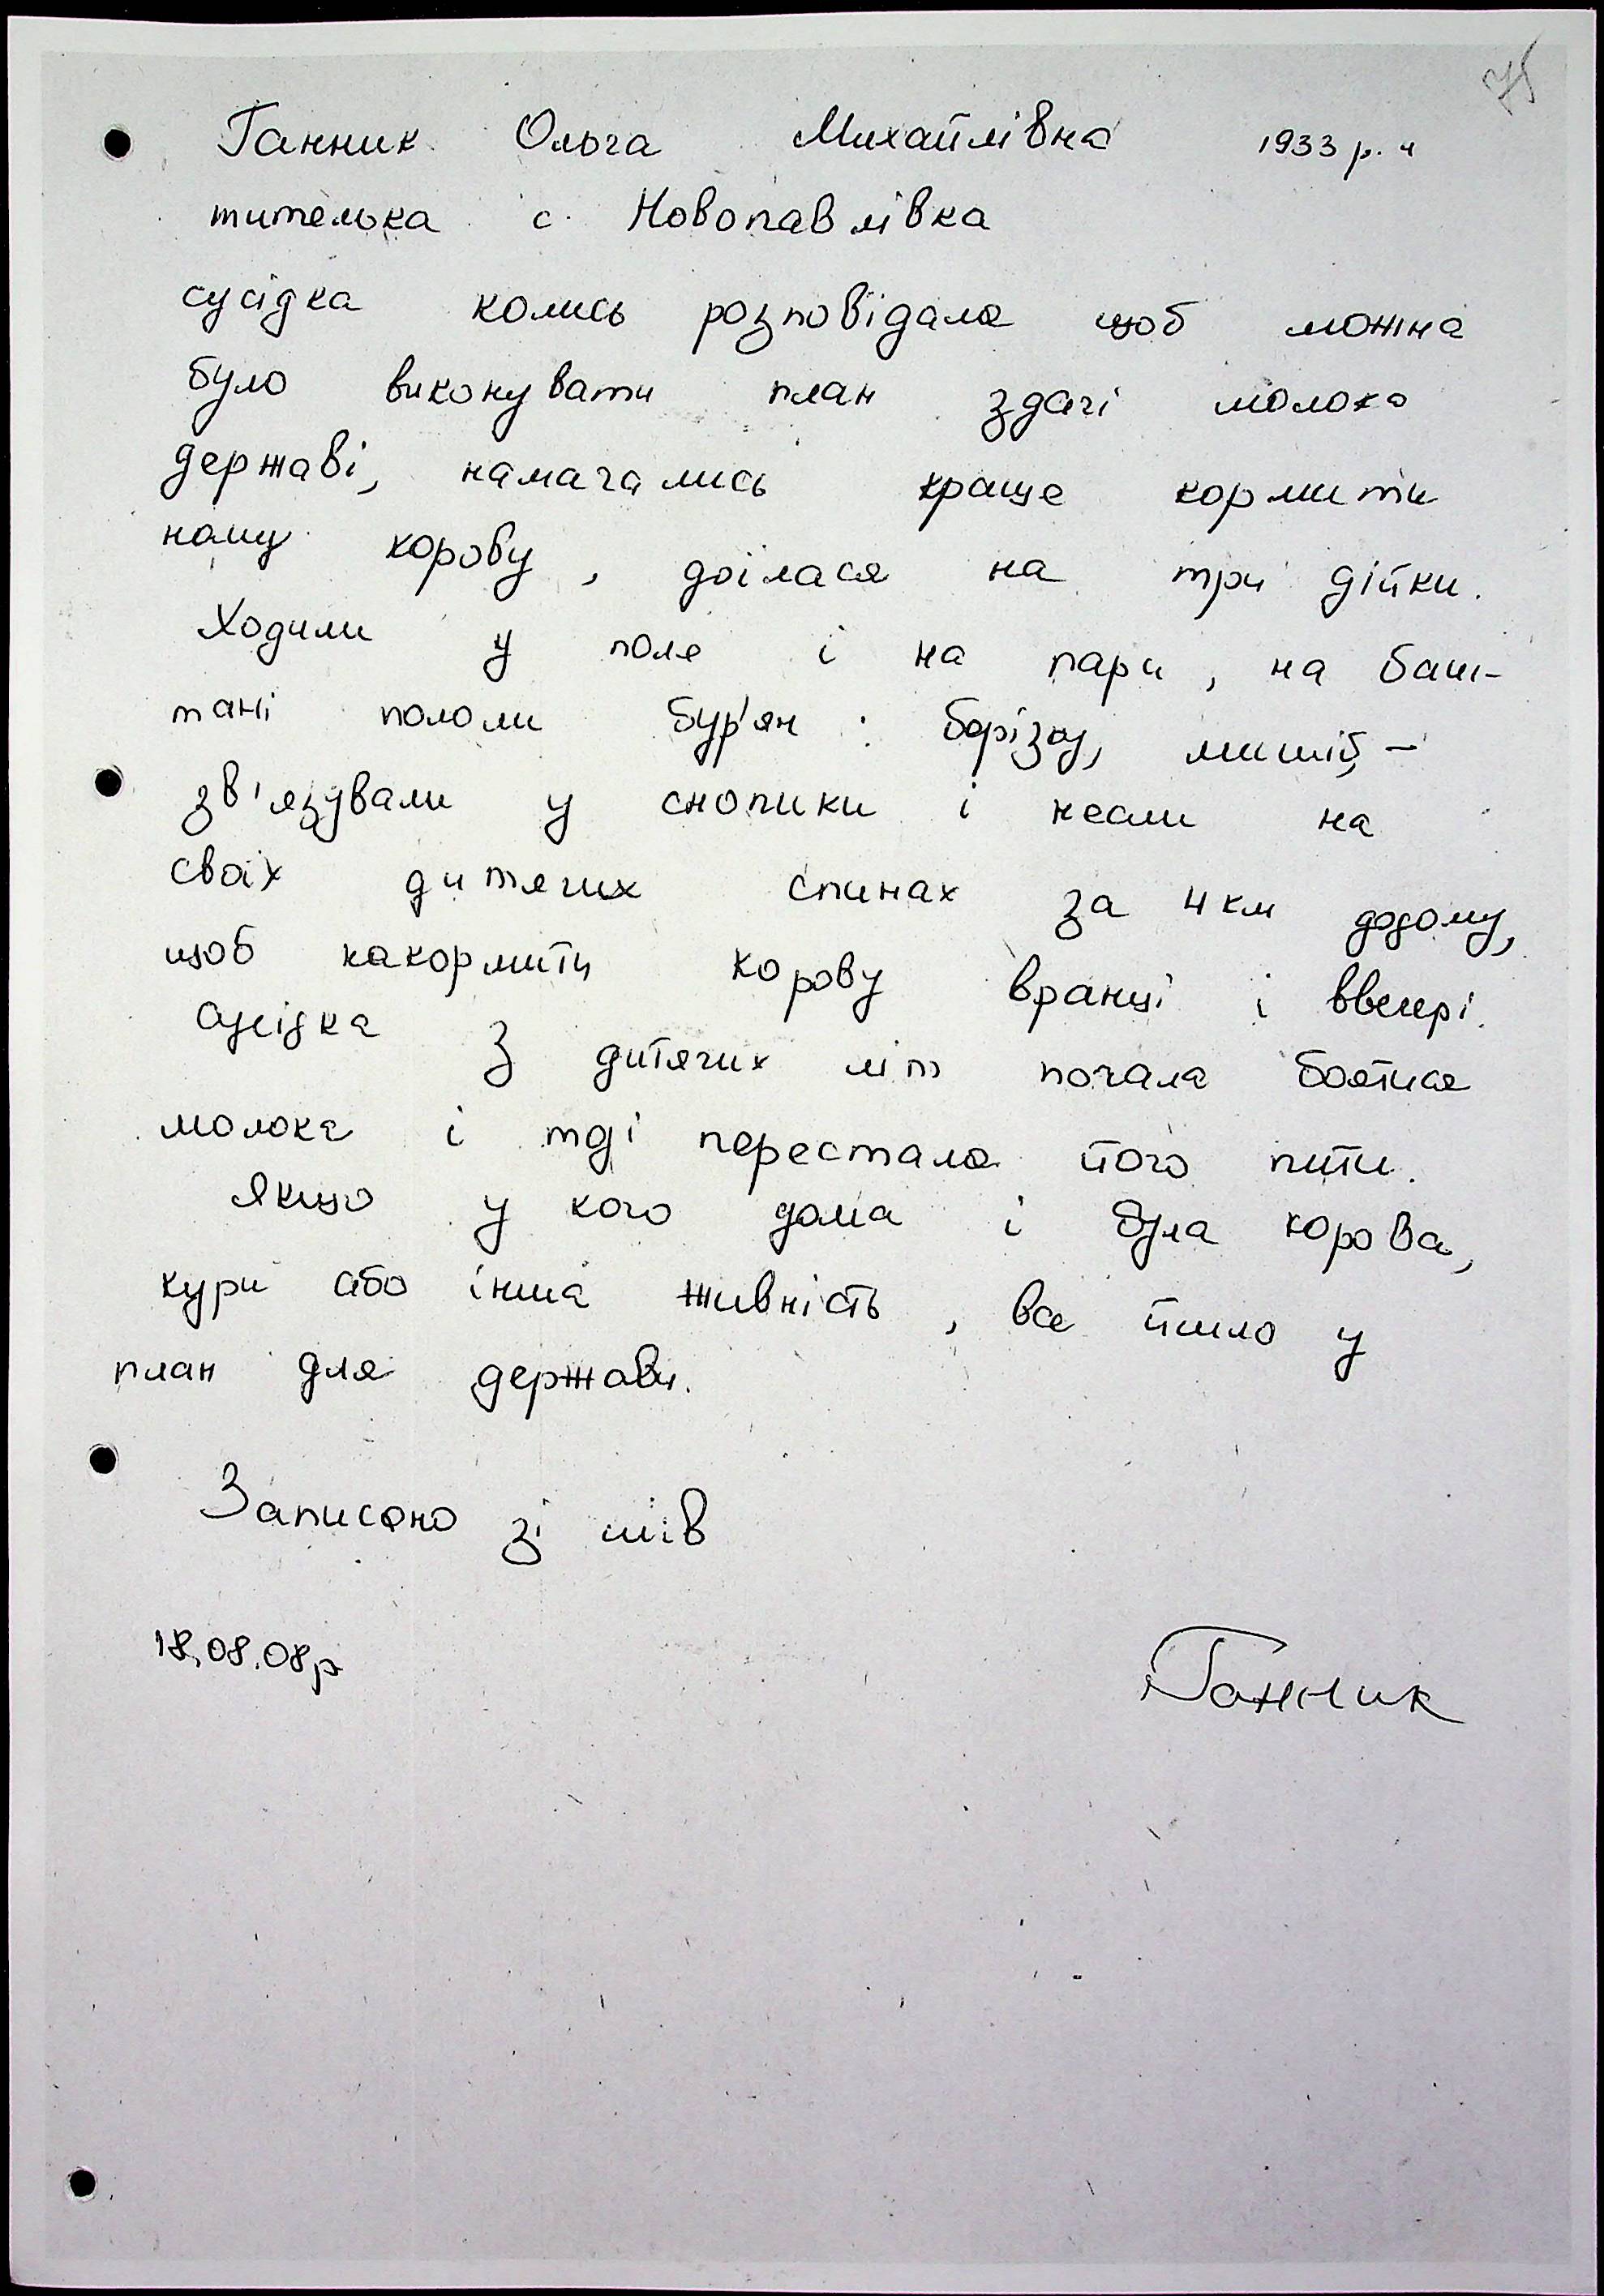 75
Ганник Ольга Михайлівна 1933 р. н
жителька с. Новопавлівка
сусідка колись розповідала щоб можна
було виконувати план здачі молока
державі, намагались краще кормити
нашу корову, доїлася на три дійки.
Ходили у поле і на пари, на баш-
тані пололи бур'ян: берізку, мишій, -
зв'язували у снопики і несли на
своїх дитячих спинах за 4 км додому,
щоб накормити корову вранці і ввечері.
Сусідка з дитячих літ почала боятися
молока і тді перестала його пити.
Якщо у кого дома і була корова,
кури або інша живність, все йшло у
план для держави.
Записано зі слів
18.08.08р
Ганник